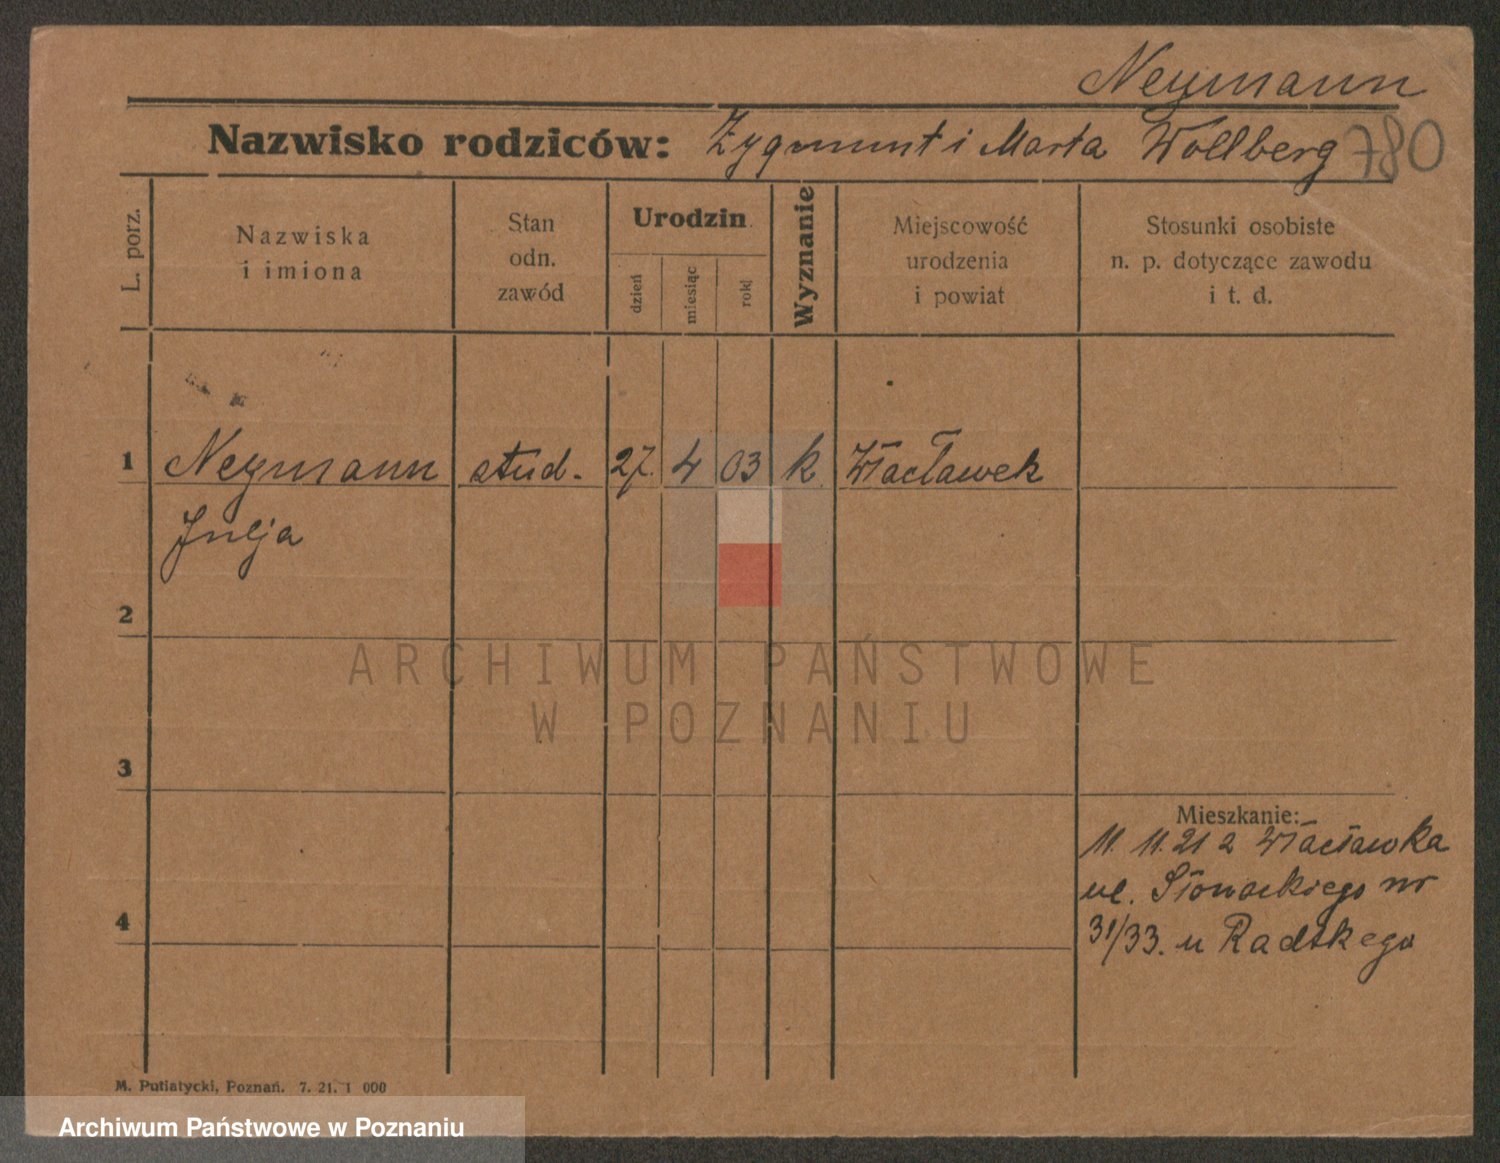 Neymann
Nazwisko rodziców: Zygmunt i Marta Wollberg 780
L. porz.
Nazwiska
i imiona
Stan
odn.
zawód
Urodzin
dzień
miesiąc
rok
Wyznanie
Miejscowość
urodzenia
i powiat
Stosunki osobiste
n. p. dotyczące zawodu
i t. d.
1 Neymann stud. 27. 4 03 k. Włacławek
Julja
2
ARCHIWUM PAŃSTWOWE
W POZNANIU
3
Mieszkanie:
11. 11. 21 z Włacławka
ul. Słowackiego nr
4
31/33. u Radtkego
M. Putiatycki, Poznań. 7. 21. 1 000
Archiwum Państwowe w Poznaniu